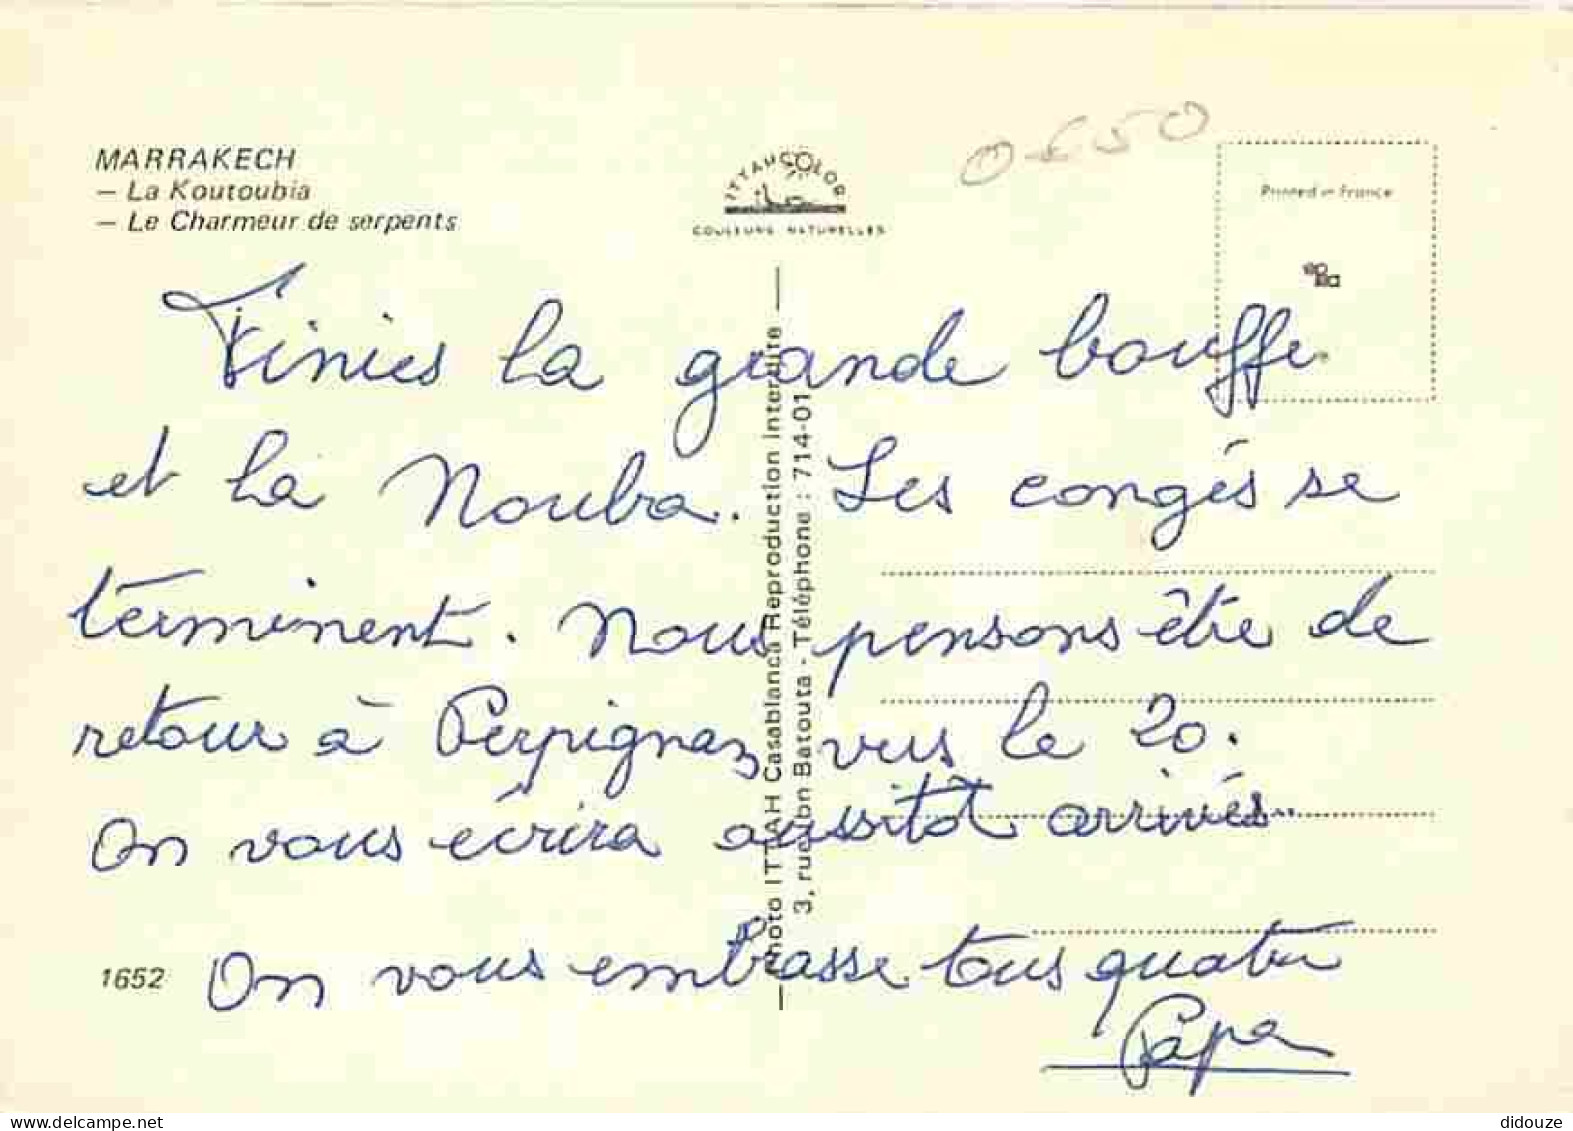 MARRAKECH
– La Koutoubia
– Le Charmeur de serpents
ITTAHCOLOR
COULEURS NATURELLES
0€50
Printed in France
Finies la grande bouffe
et la Nouba. Les congés se
terminent. Nous pensons être de
retour à Perpignan vers le 20.
On vous écrira aussitôt arrivés..
On vous embrasse tous quatre
Papa
1652
Photo ITTAH Casablanca Reproduction interdite
3, rue Ibn Batouta - Téléphone : 714-01
didouze